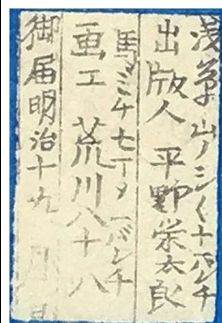 浅草山ノシク十六バンチ
出版人 平野栄太郎
馬ミチ七丁メ一バンチ
画工 荒川八十八
御届明治十九 月 日